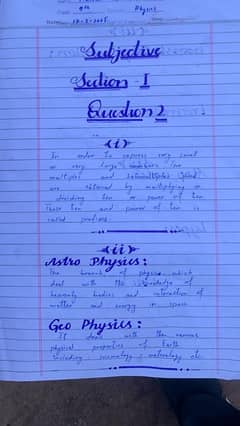 9th
Physics
Subjective
Section - I
Question 2
(i)
In order to express very small
or very large numbers. The
multiples and
are obtained by multiplying or
dividing ten or power of ten
These ten and power of ten is
called prefixes.
(ii)
Astro Physics:
The branch of physics which
deal with the knowledge of
heavenly bodies and interaction of
matter and energy in space
Geo Physics:
It deals with the various
physical properties of Earth
including seismology, etc